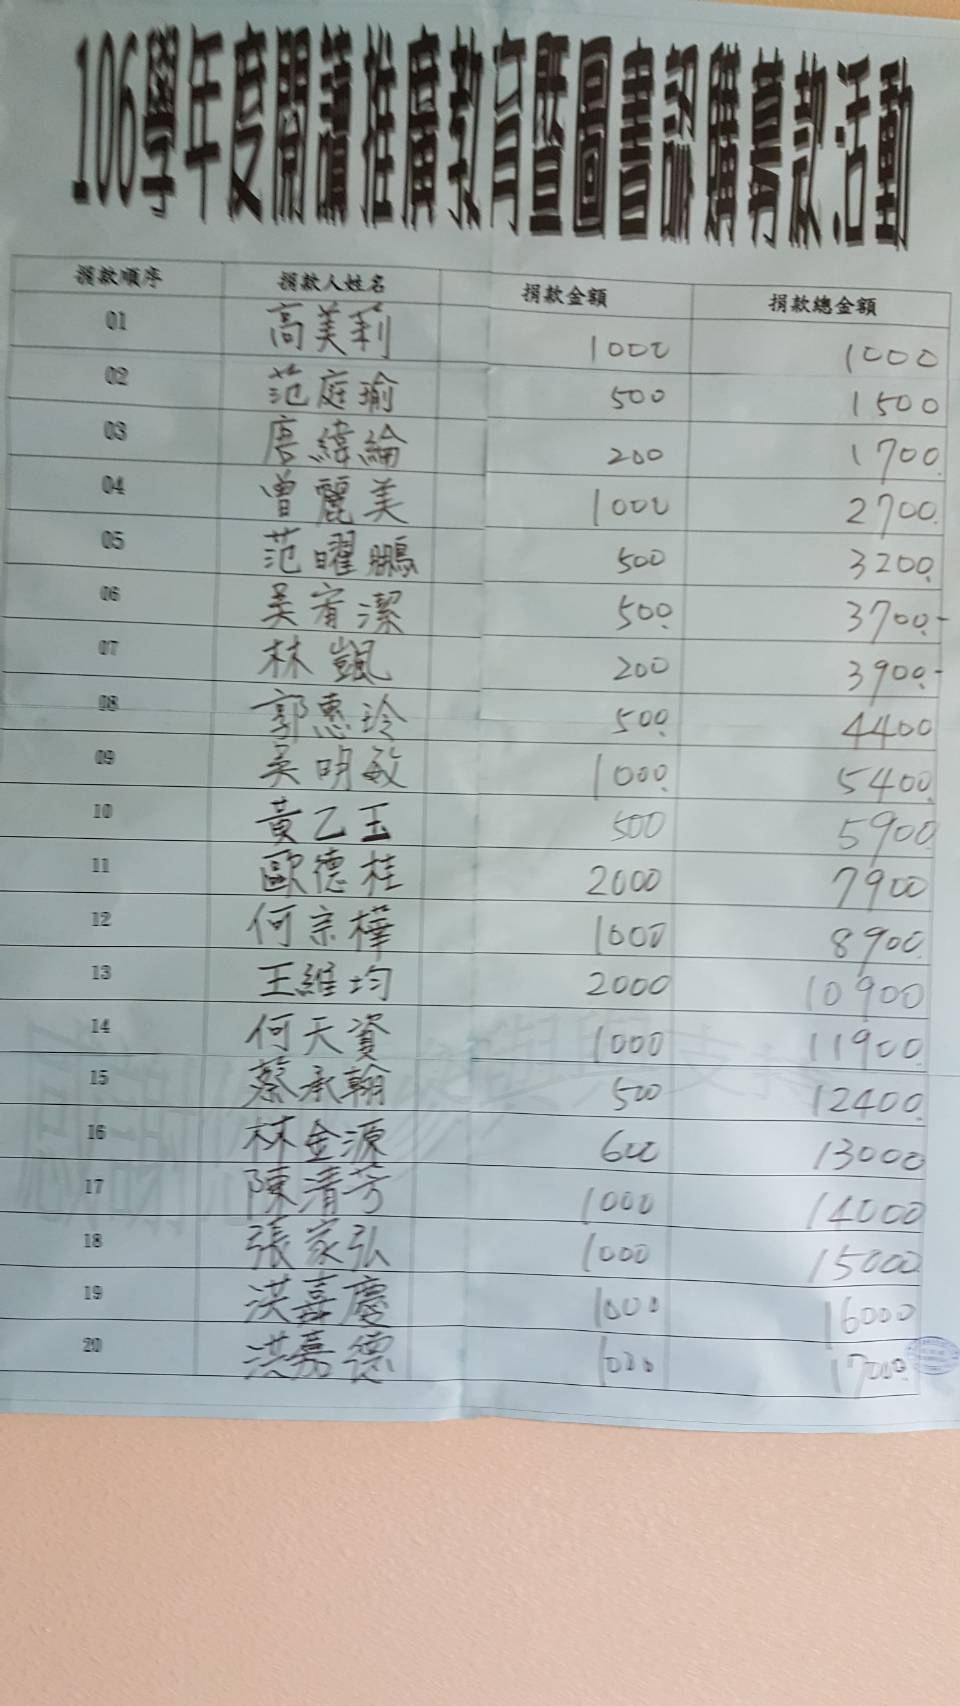 106學年度閱讀推廣教育暨圖書認購募款活動
捐款順序 捐款人姓名 捐款金額 捐款總金額
01 高美莉 1000 1000
02 范庭瑜 500 1500
03 唐緯綸 200 1700
04 曾麗美 1000 2700
05 范曜鵬 500 3200
06 吳宥潔 500 3700.-
07 林颽 200 3900.-
08 郭惠玲 500 4400
09 吳明敏 1000 5400
10 黃乙玉 500 5900
11 歐德桂 2000 7900
12 何宗樺 1000 8900
13 王維均 2000 10900
14 何天資 1000 11900
15 蔡承翰 500 12400
16 林金源 600 13000
17 陳清芳 1000 14000
18 張家弘 1000 15000
19 洪嘉慶 1000 16000
20 洪嘉德 1000 17000